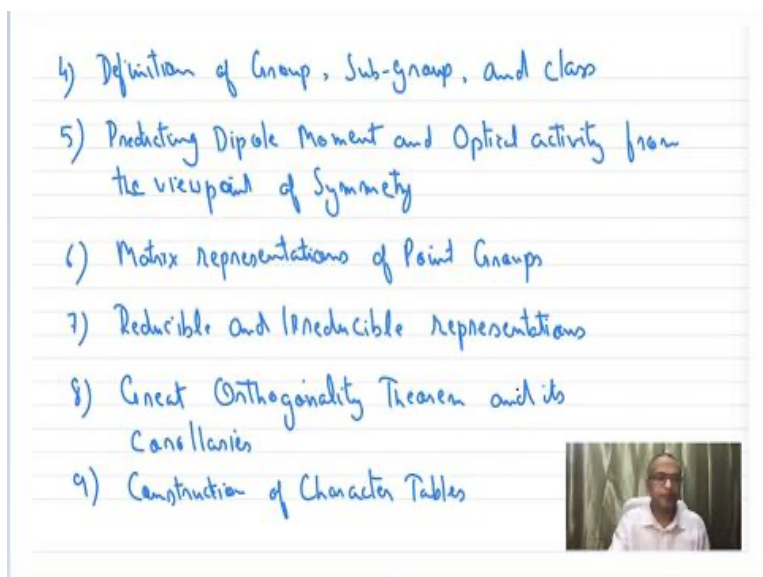 4) Definition of Group, Sub-group, and class
5) Predicting Dipole Moment and Optical activity from
the viewpoint of Symmety
6) Matrix representations of Point Groups
7) Reducible and Irreducible representations
8) Great Orthogonality Theorem and its
Corollaries
9) Construction of Character Tables